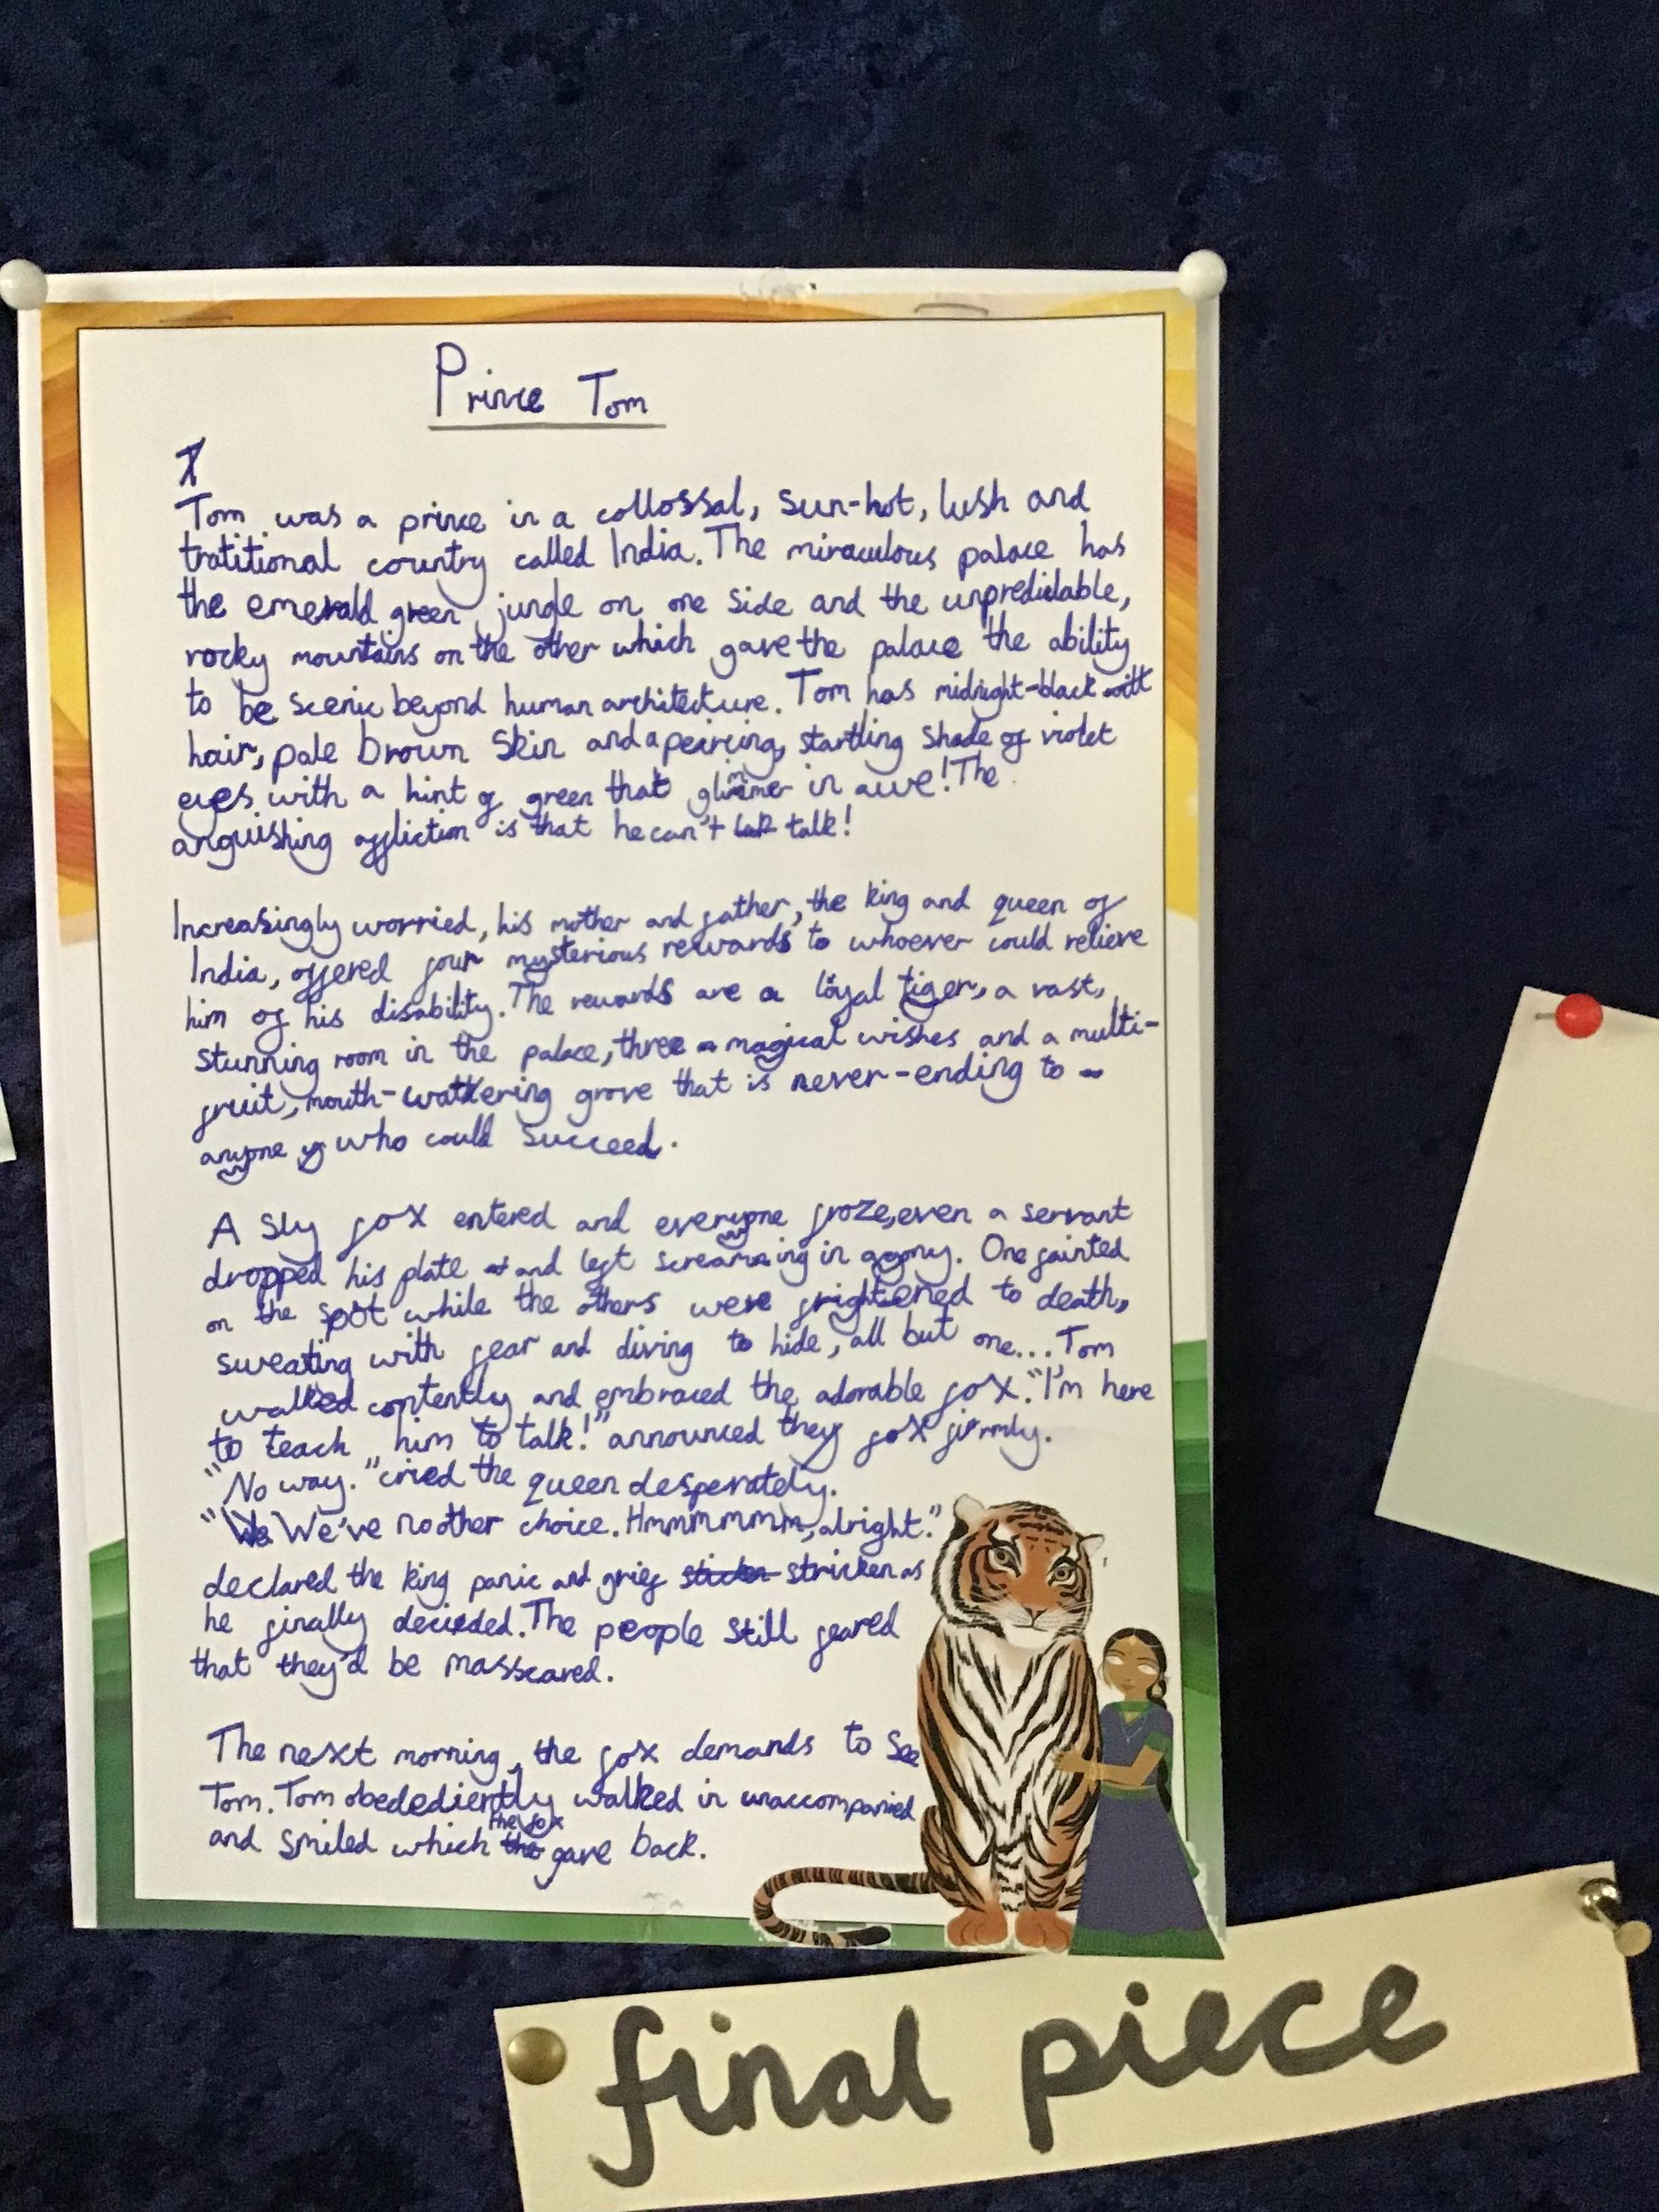 Prince Tom
Tom was a prince in a collossal, sun-hot, lush and
tratitional country called India. The miraculous palace has
the emerald green jungle on one side and the unpredictable,
rocky mountains on the other which gave the palace the ability
to be scenic beyond human architecture. Tom has midnight-black
hair, pale brown skin and a peircing, startling shade of violet
eyes with a hint of green that glimmer in awe! The
anguishing affliction is that he can't talk!
Increasingly worried, his mother and father, the king and queen of
India, offered four mysterious rewards to whoever could relieve
him of his disability. The rewards are a loyal tiger, a vast,
stunning room in the palace, three magical wishes and a multi-
fruit, mouth-wattering grove that is never-ending to
anyone who could succeed.
A sly fox entered and everyone froze, even a servant
dropped his plate and left screaming in agony. One fainted
on the spot while the others were frightened to death,
sweating with fear and diving to hide, all but one... Tom
walked contently and embraced the adorable fox. "I'm here
to teach him to talk!" announced they fox firmly.
"No way." cried the queen desperately.
"We've no other choice. Hmmmmmm, alright."
declared the king panic and grief stricken as
he finally decieded. The people still feared
that they'd be masscared.
The next morning, the fox demands to see
Tom. Tom obedediently walked in unaccompanied
and smiled which the fox gave back.
final piece